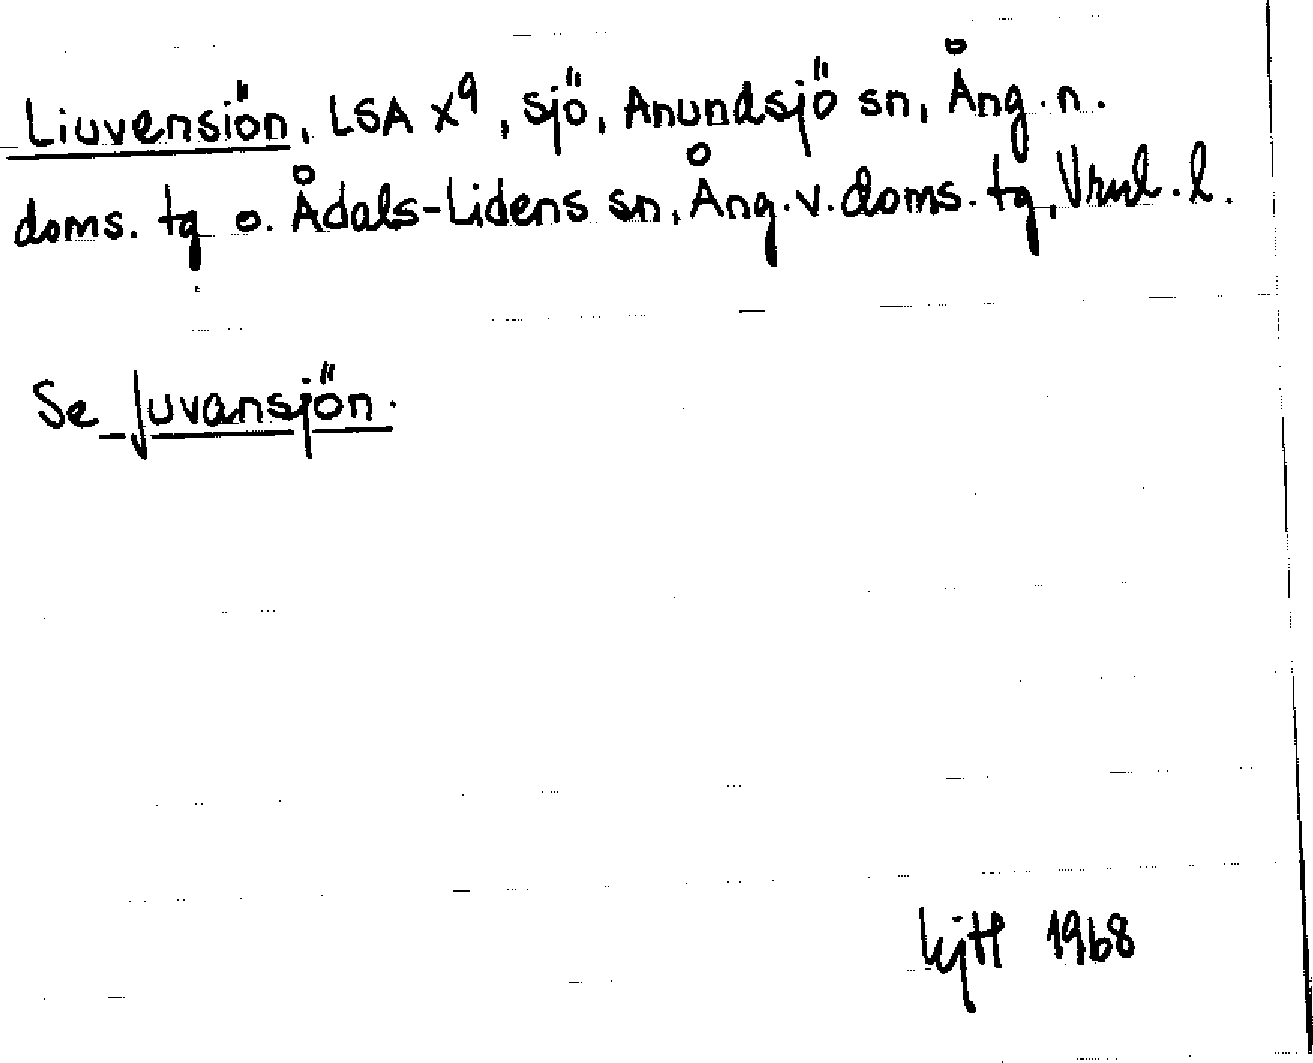 Liuvensiön, LSA X9, sjö, Anundsjö sn, Ång. n.
doms. tg o. Ådals-Lidens sn, Ång. v. doms. tg, Vrnl. l.
Se Juvansjön.
1968